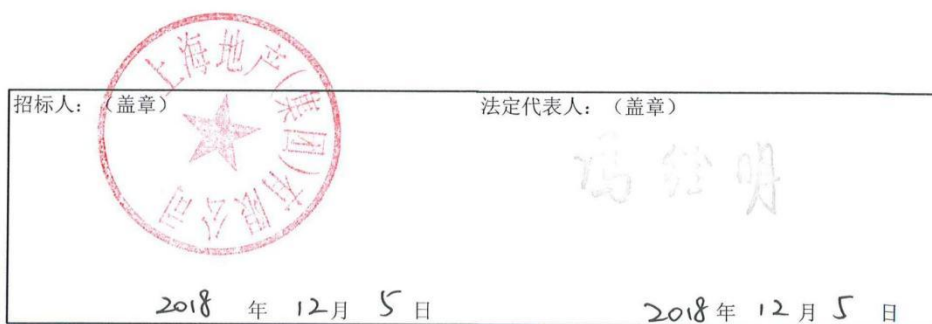 上海地产(集团)有限公司
招标人：（盖章）
法定代表人：（盖章）
2018 年 12月 5 日
2018年 12 月 5 日